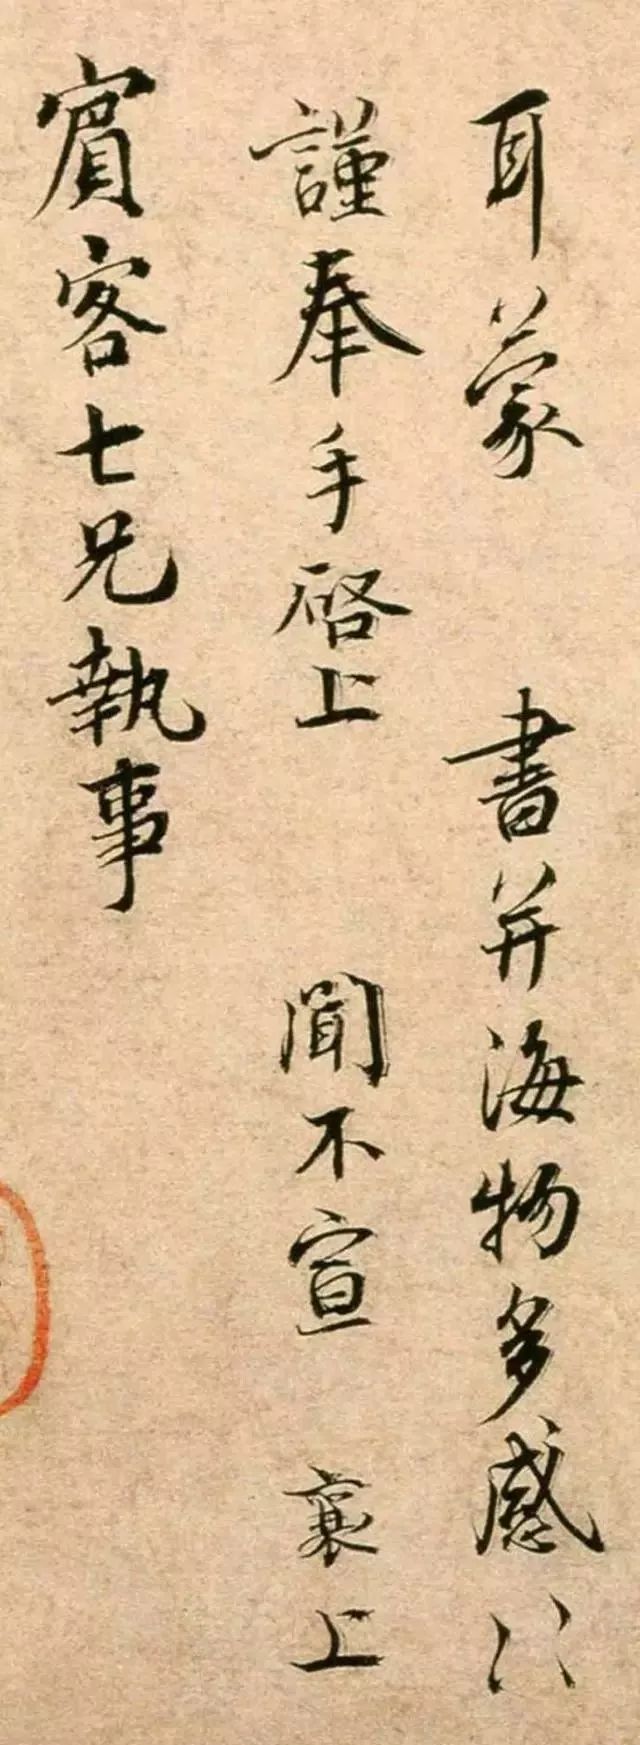 耳蒙 書并海物多感〻
謹奉手啓上 聞不宣 襄上
賓客七兄執事